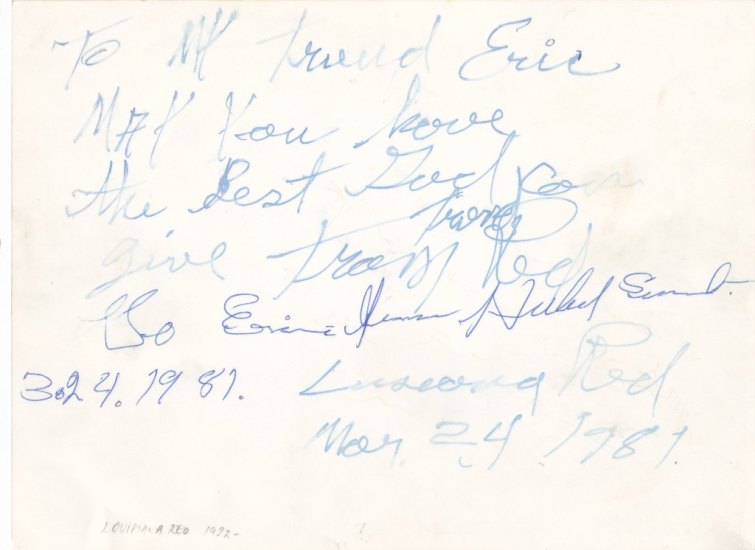 To MY friend Eric
MAY You have
the Best God can
give from Red
from
To Eric Hubert Sumlin
3.24.1981.
Louisiana Red
Mar. 24 1981.
LOUISIANA RED 1972-